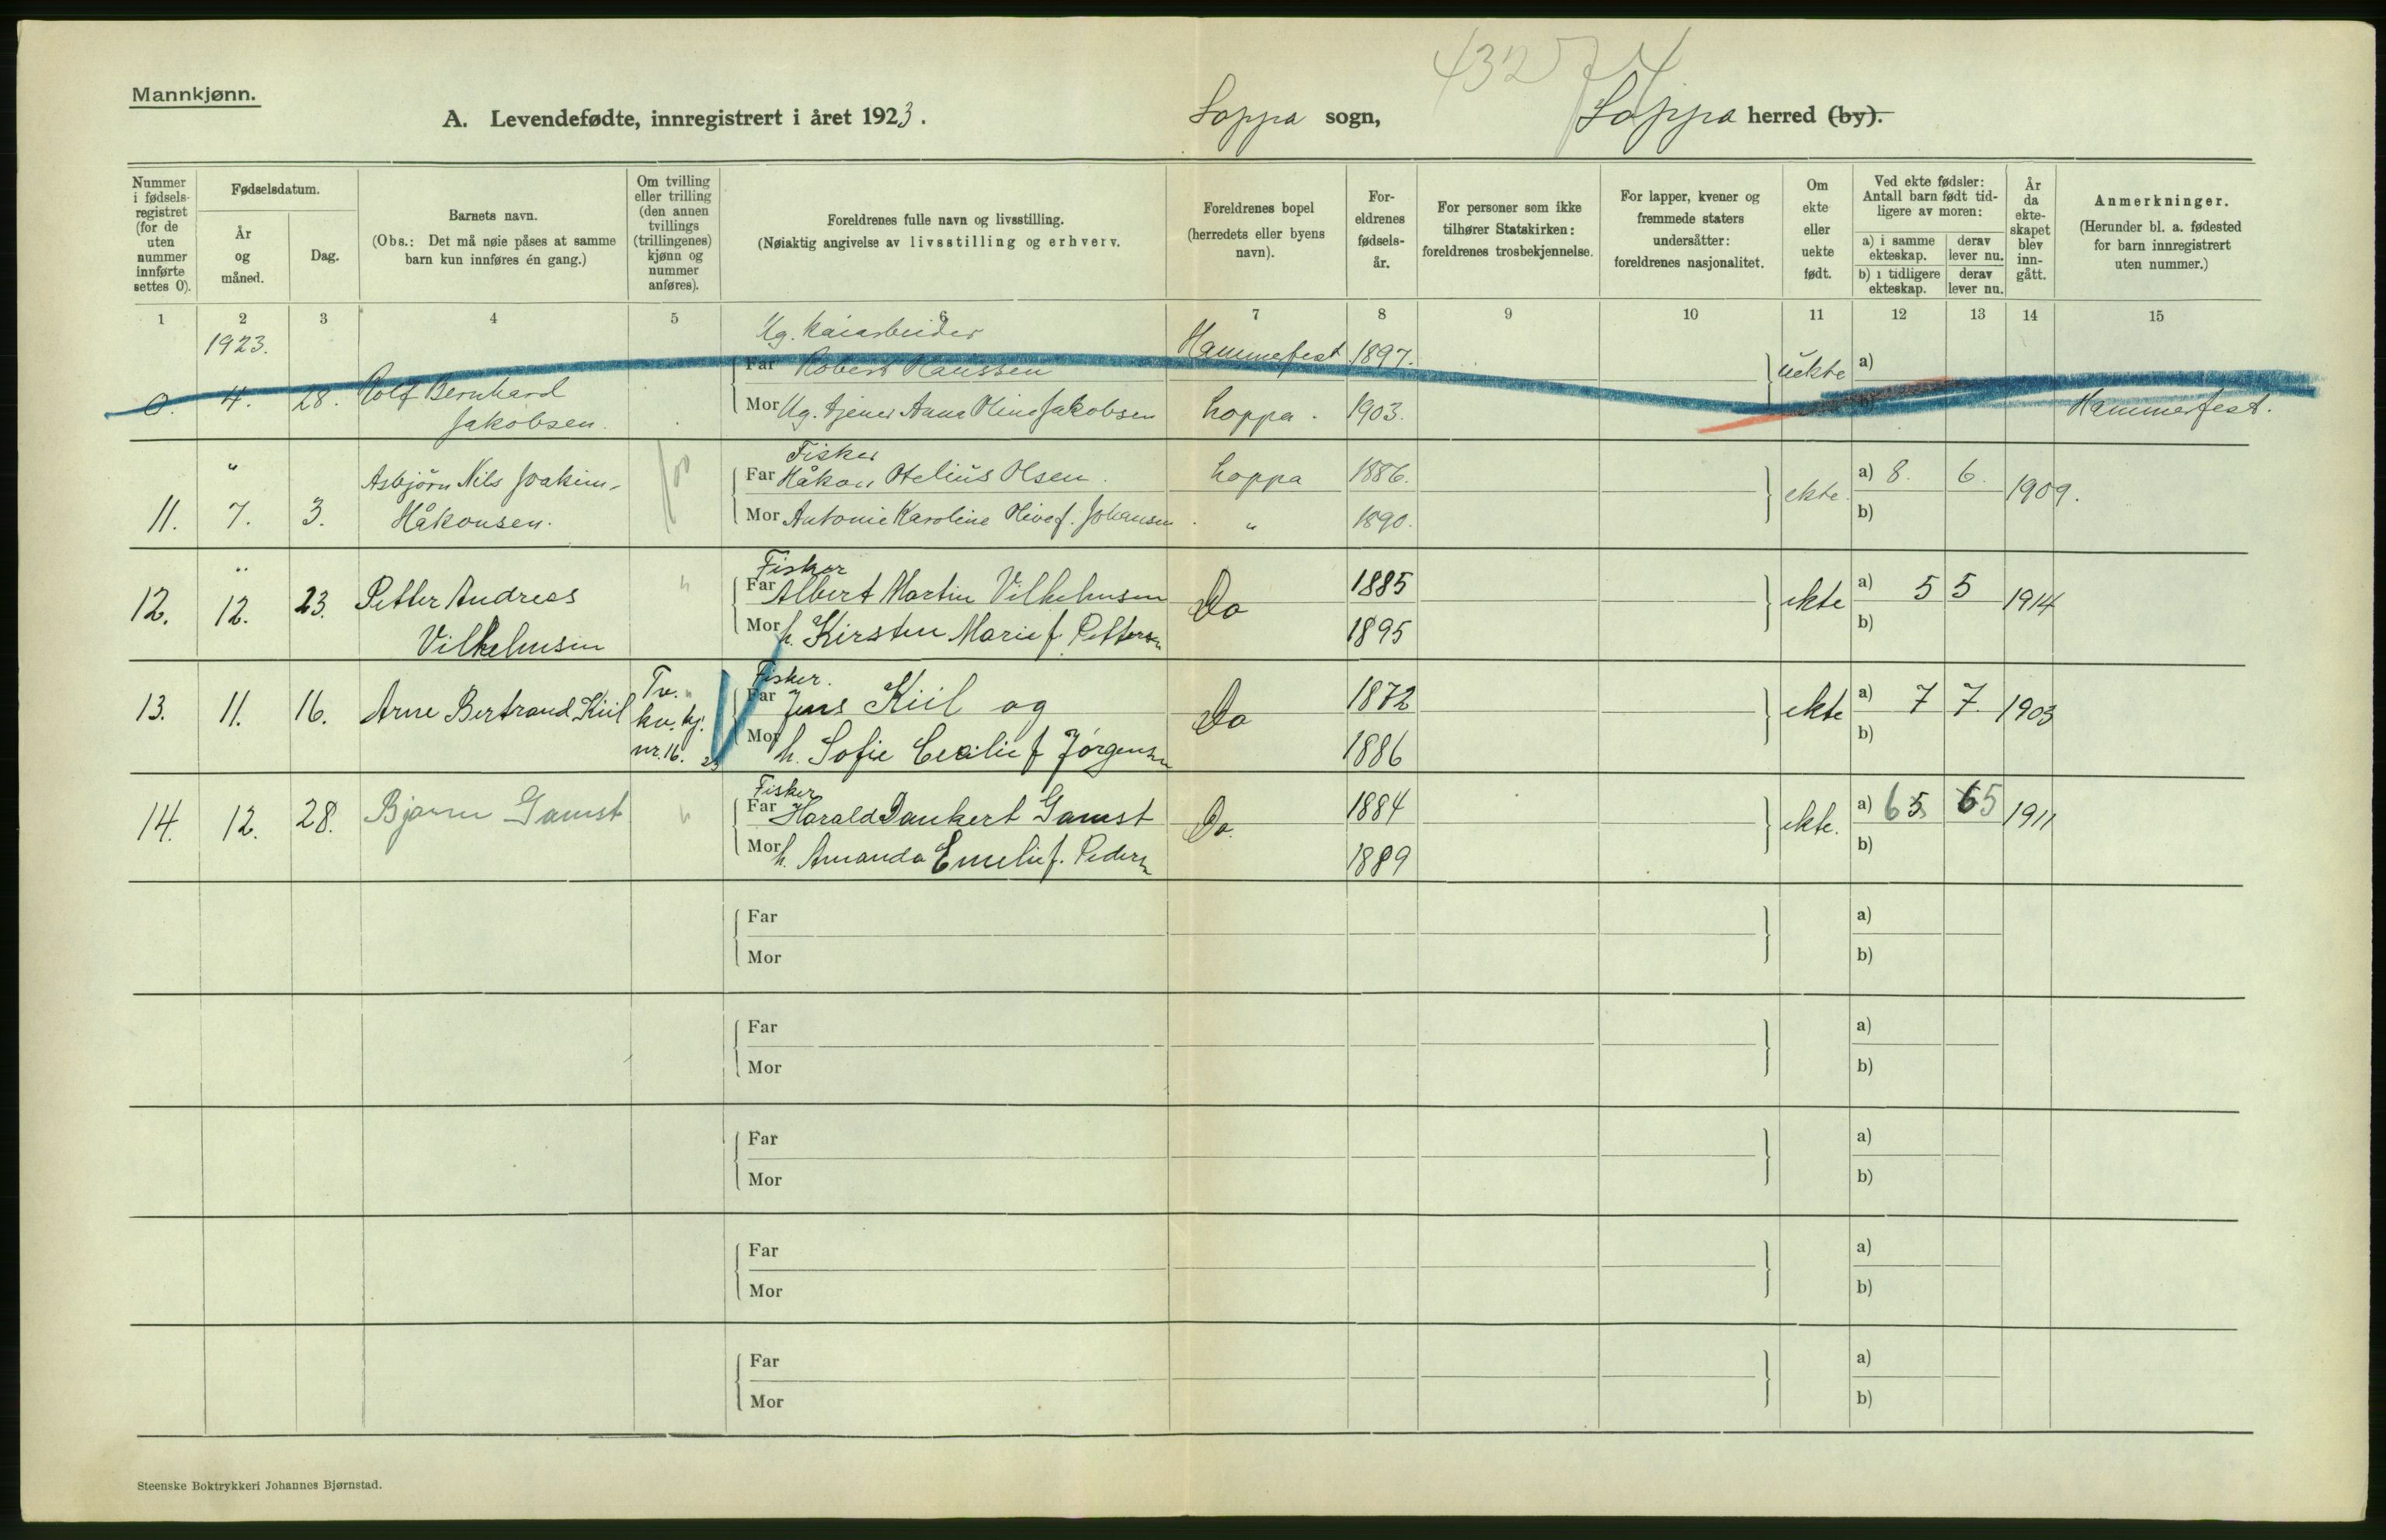 43274
Mannkjønn.
A. Levendefødte, innregistrert i året 1923. Loppa sogn, Loppa herred (by).
Nummer i fødsels-registret (for de uten nummer innførte settes 0).
Fødselsdatum.
År og måned.
Dag.
Barnets navn.
(Obs.: Det må nøie påses at samme barn kun innføres én gang.)
Om tvilling eller trilling (den annen tvillings (trillingenes) kjønn og nummer anføres).
Foreldrenes fulle navn og livsstilling.
(Nøiaktig angivelse av livsstilling og erhverv.
Foreldrenes bopel (herredets eller byens navn).
For-eldrenes fødsels-år.
For personer som ikke tilhører Statskirken: foreldrenes trosbekjennelse.
For lapper, kvener og fremmede staters undersåtter: foreldrenes nasjonalitet.
Om ekte eller uekte født.
Ved ekte fødsler: Antall barn født tid-ligere av moren:
a) i samme ekteskap.
derav lever nu.
b) i tidligere ekteskap.
derav lever nu.
År da ekte-skapet blev inn-gått.
Anmerkninger.
(Herunder bl. a. fødested for barn innregistrert uten nummer.)
1 2 3 4 5 6 7 8 9 10 11 12 13 14 15
1923.
Ug. Kaiarbeider
Far Robert Hanssen Hammerfest 1897. uekte a)
0. 4. 28. Rolf Bernhard
Jakobsen.
Mor Ug. tjener Anna Oline Jakobsen Loppa. 1903. b) Hammerfest.
" Fisker
Asbjörn Nils Joakim
Far Håkon Otelius Olsen. Loppa 1886. ekte. a) 8. 6. 1909.
11. 7. 3. Håkonsen.
Mor Antonie Karoline Olive f. Johansen " 1890. b)
" Fisker
12. 12. 23. Petter Andreas
Vilhelmsen
" Far Albert Martin Vilhelmsen Do 1885 ekte a) 5 5 1914
Mor h. Kirsten Marie f. Pettersen 1895 b)
Fisker.
13. 11. 16. Arne Bertrand Kiil Tv.
kv. kj.
nr. 16.
Far Jens Kiil og Do 1872 ekte a) 7 7. 1903
Mor h. Sofie Cecilie f Jörgensen 1886 b)
Fisker
14. 12. 28. Bjarne Gamst " Far Harald Dankert Gamst Do. 1884 ekte. a) 65 65 1911
Mor h. Amanda Emelie f. Pedersn 1889 b)
Far a)
Mor b)
Far a)
Mor b)
Far a)
Mor b)
Far a)
Mor b)
Far a)
Mor b)
Steenske Boktrykkeri Johannes Bjørnstad.